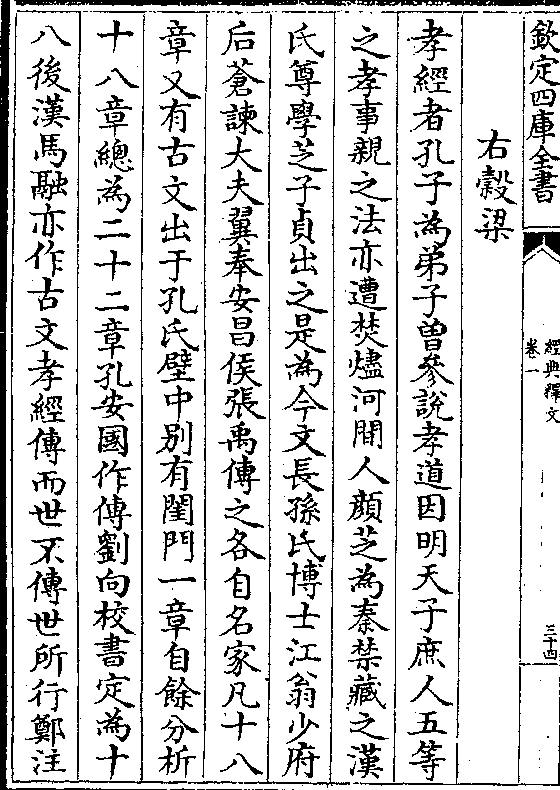 欽定四庫全書
經典釋文
卷一
三十四
右穀梁
孝經者孔子為弟子曾參說孝道因明天子庶人五等
之孝事親之法亦遭焚燼河間人顏芝為秦禁藏之漢
氏尊學芝子貞出之是為今文長孫氏博士江翁少府
后蒼諫大夫翼奉安昌侯張禹傳之各自名家凡十八
章又有古文出于孔氏壁中别有閨門一章自餘分析
十八章總為二十二章孔安國作傳劉向校書定為十
八後漢馬融亦作古文孝經傳而世不傳世所行鄭注